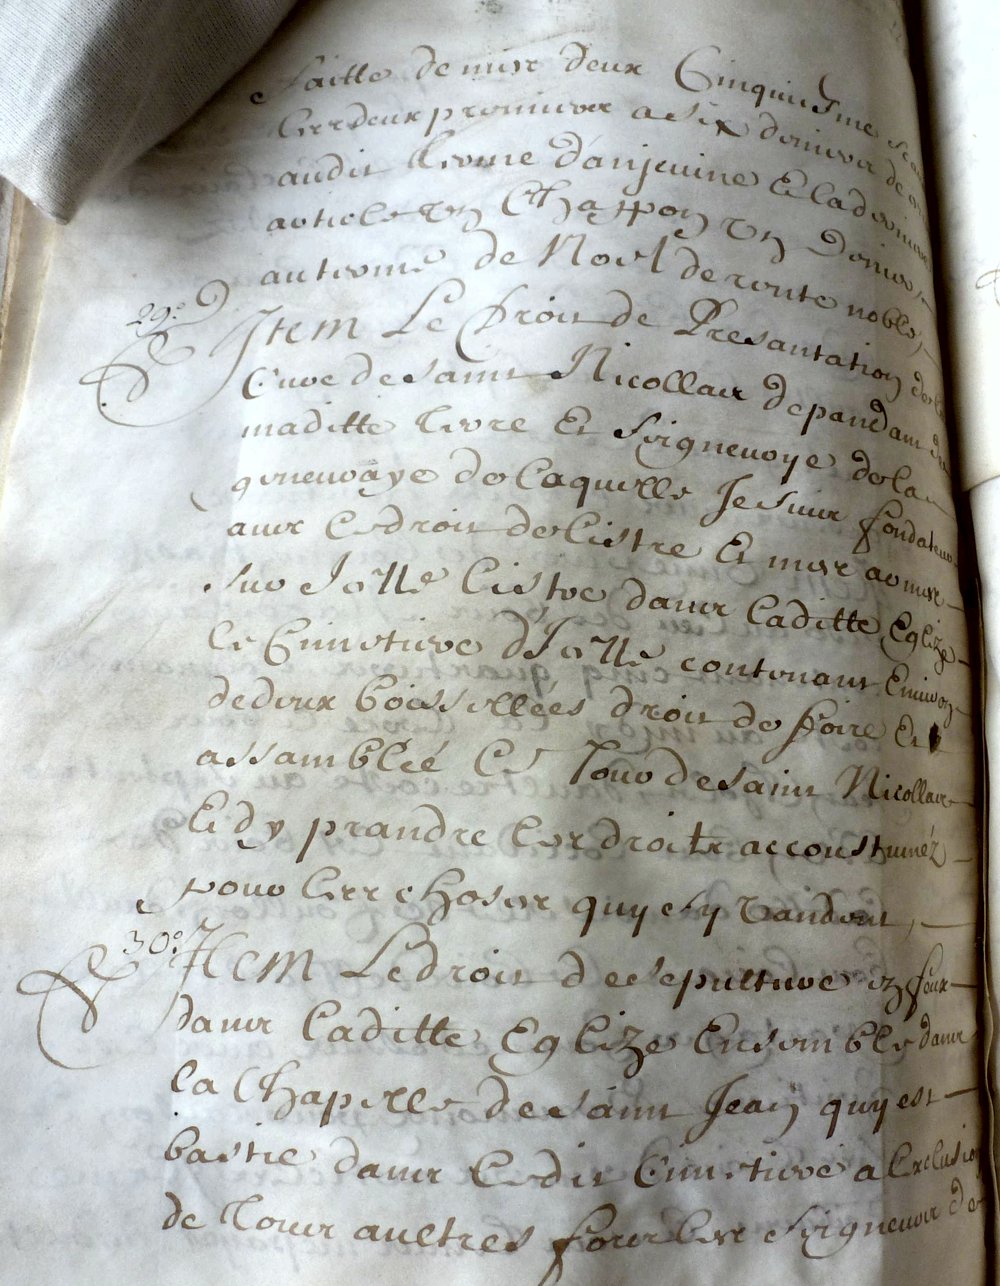 faille de mes deux Cinquiesme
les deux premiers a six deniers de
audit terme d'anjevine Et la derniere
article un Chappon un denier,
au terme de Noel de rente noble,
29e Item Le Droit de Presantation de la
Cure de Saint Nicollas depandant de
maditte terre Et Seigneurye de la
geneuraye de laquelle Je Suis fondateur
avec le droit de listre Et mes armes
sur Jcelle listre dans laditte Eglize
le Cimetiere d'Jcelle contenant Environ
de deux boissellées droit de foire Et
assamblée Le Jour de Saint Nicollas
Et d'y prandre les droits accoustuméz
pour les choses quy s'y vandent,
30e Item Le droit de Sepulture Ez feux
dans laditte Eglize Ensemble dans
la Chapelle de Saint Jean quy est
bastie dans ledit Cimetiere a l'exclusion
de tous aultres fors les Seigneurs de